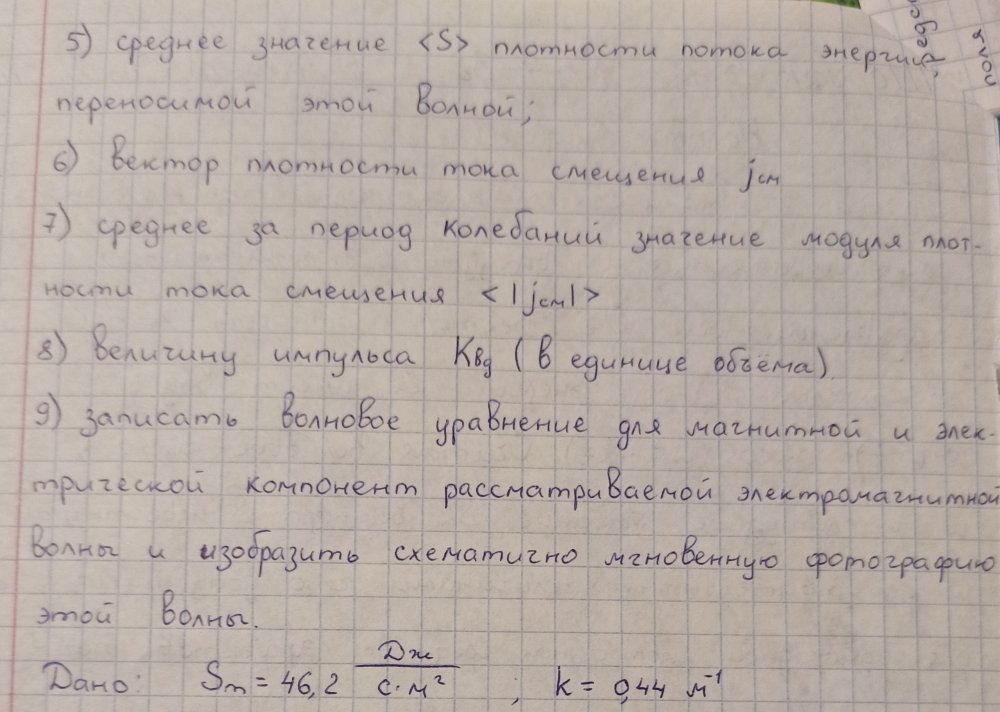 5) среднее значение <S> плотности потока энергии,
переносимой этой волной;
6) вектор плотности тока смещения jсм
7) среднее за период колебаний значение модуля плот-
ности тока смещения <|jсм|>
8) величину импульса Kед (в единице объёма).
9) записать волновое уравнение для магнитной и элек-
трической компонент рассматриваемой электромагнитной
волны и изобразить схематично мгновенную фотографию
этой волны.
Дано: Sm = 46,2 Дж/с·м² ; k = 0,44 м⁻¹